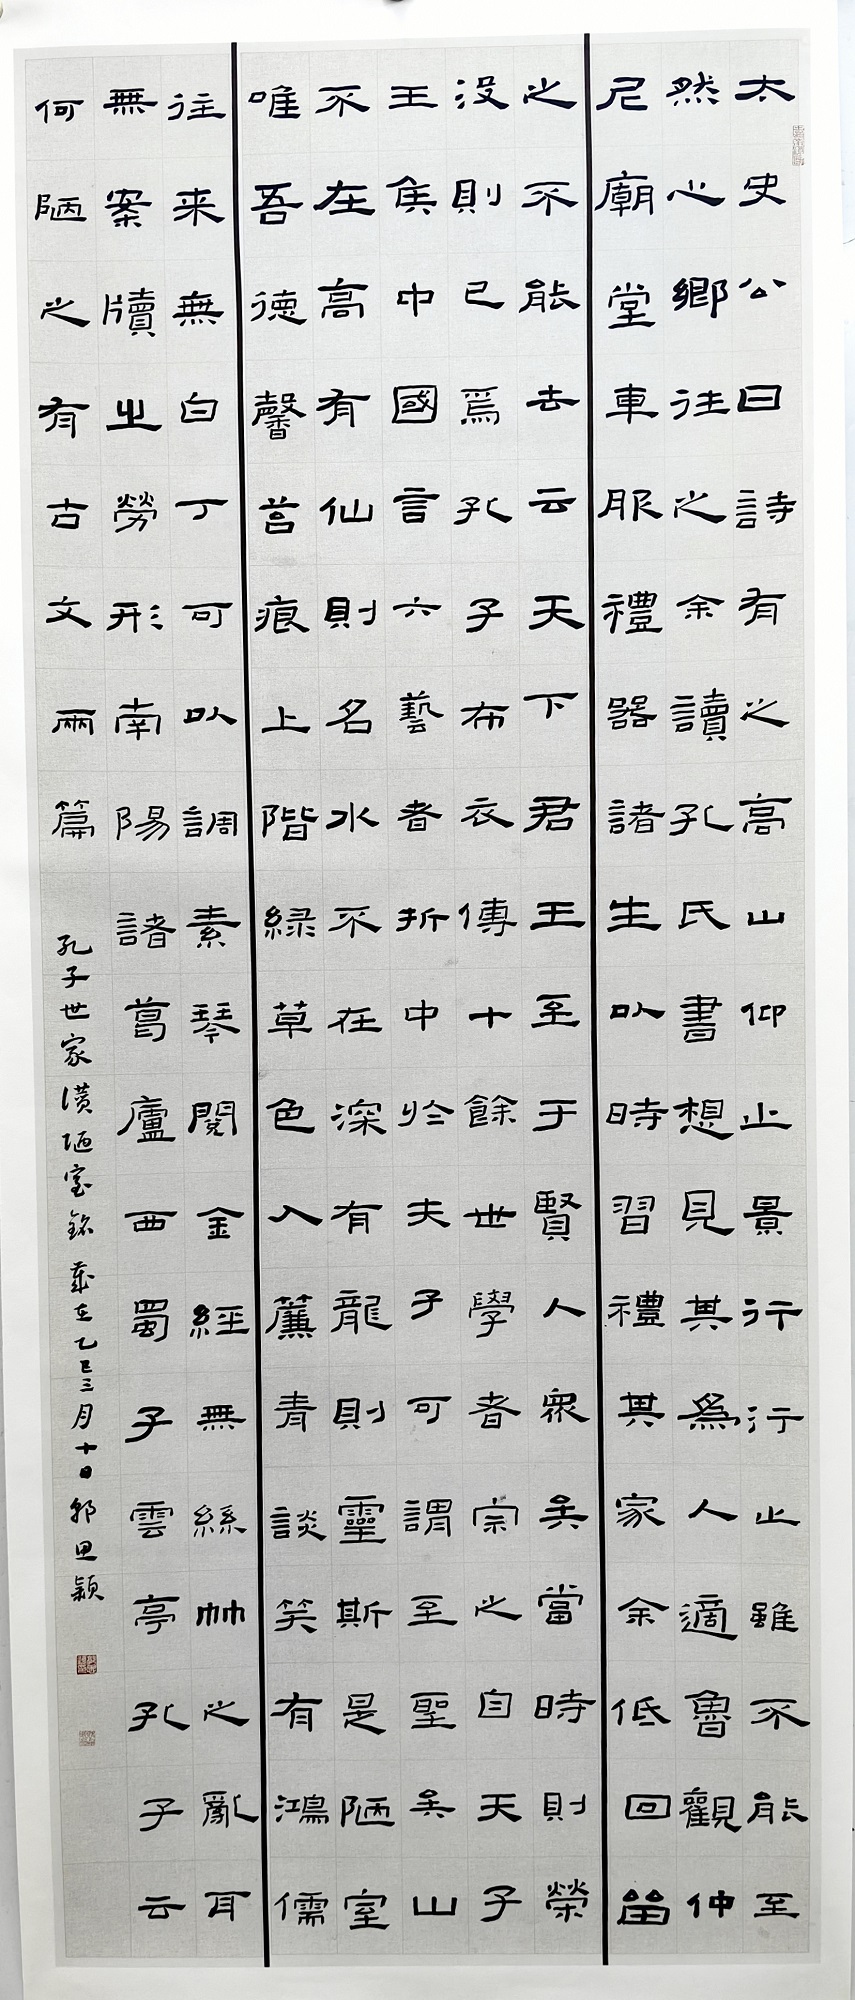 太史公曰詩有之高山仰止景行行止雖不能至
然心鄉往之余讀孔氏書想見其為人適魯觀仲
尼廟堂車服禮器諸生以時習禮其家余低回留
之不能去云天下君王至于賢人眾矣當時則榮
没則已焉孔子布衣傳十餘世學者宗之自天子
王侯中國言六藝者折中於夫子可謂至聖矣山
不在高有仙則名水不在深有龍則靈斯是陋室
唯吾德馨苔痕上階緑草色入簾青談笑有鴻儒
往来無白丁可以調素琴閱金經無絲竹之亂耳
無案牘之勞形南陽諸葛廬西蜀子雲亭孔子云
何陋之有古文兩篇
孔子世家讚陋室銘歲在乙巳三月十日郭思穎